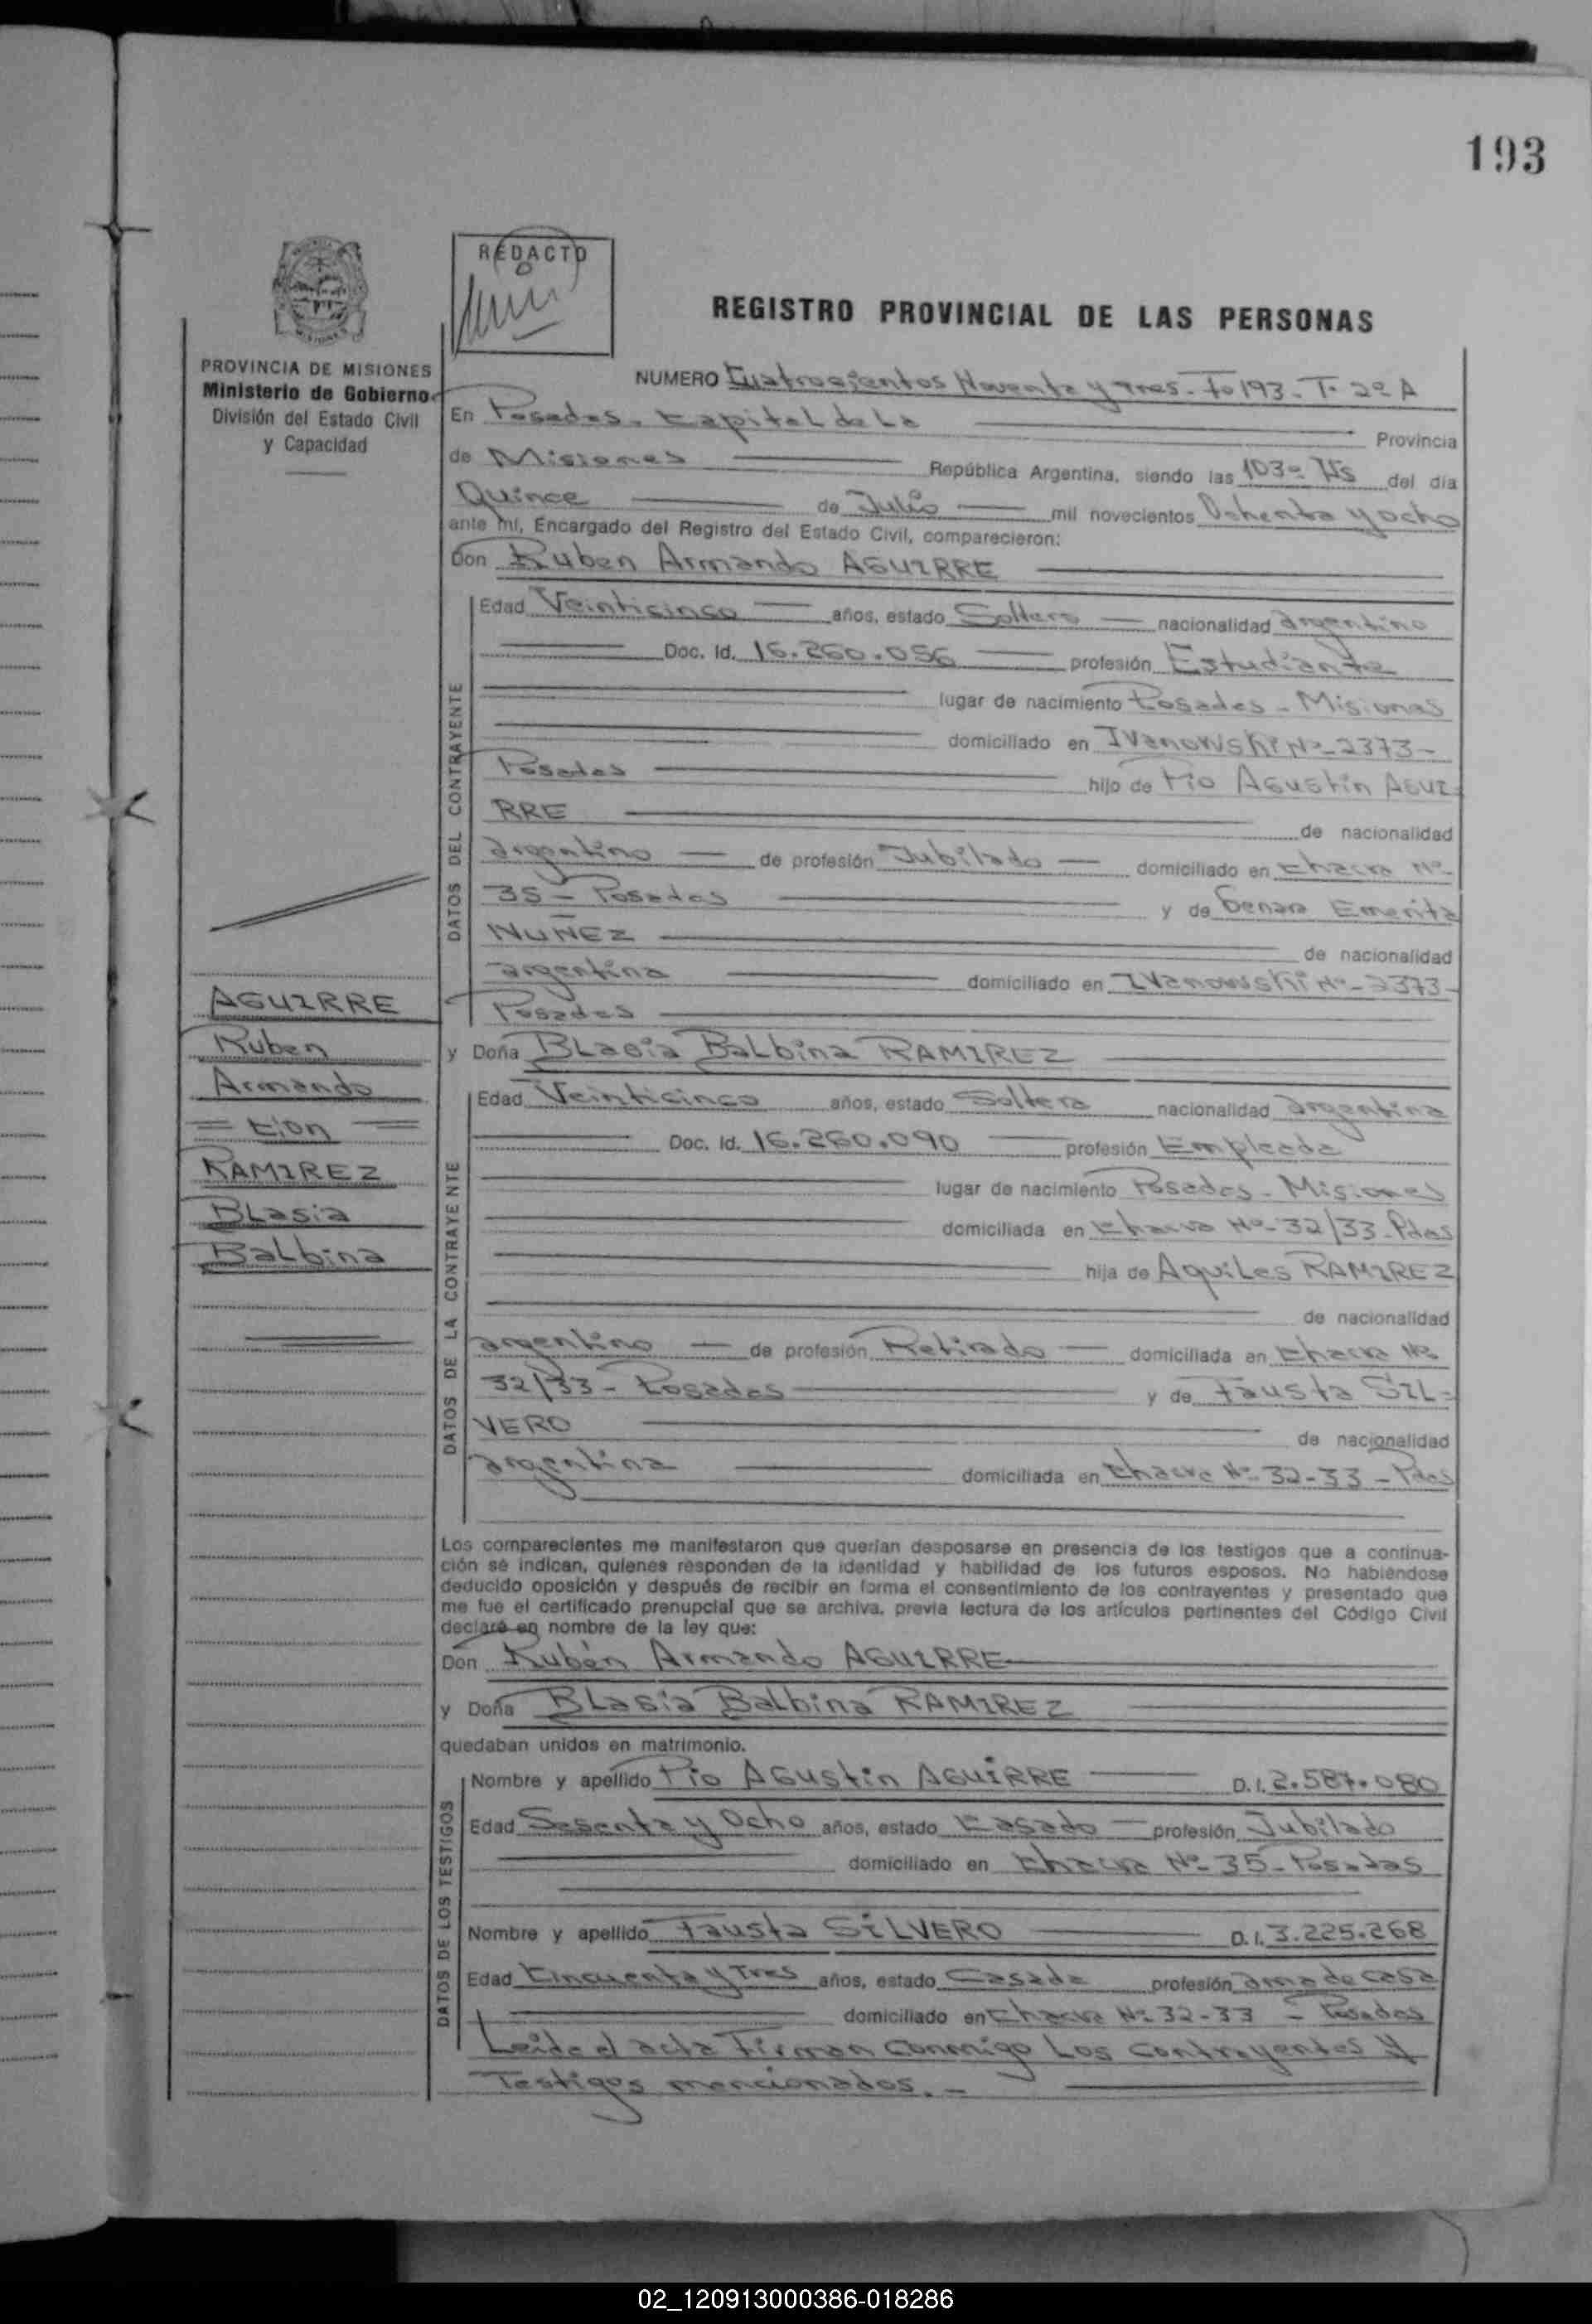 193
REDACTO
REGISTRO PROVINCIAL DE LAS PERSONAS
PROVINCIA DE MISIONES
Ministerio de Gobierno
División del Estado Civil
y Capacidad
NUMERO Cuatrocientos Noventa y Tres - Fo 193 - T. 2º A
En Posadas, Capital de La Provincia
de Misiones República Argentina, siendo las 1030 Hs del día
Quince de Julio mil novecientos Ochenta y ocho
ante mí, Encargado del Registro del Estado Civil, comparecieron:
Don Ruben Armando AGUIRRE
DATOS DEL CONTRAYENTE
Edad Veinticinco años, estado Soltero nacionalidad argentino
Doc. Id. 16.260.056 profesión Estudiante
lugar de nacimiento Posadas - Misiones
domiciliado en Ivanowski Nº 2373 -
Posadas hijo de Pio Agustin AGUI=
RRE de nacionalidad
argentino de profesión Jubilado domiciliado en Chacra Nº
35 - Posadas y de Genara Emerita
NUÑEZ de nacionalidad
argentina domiciliado en Ivanowski Nº 2373 -
Posadas
AGUIRRE
Ruben
Armando
= Con =
RAMIREZ
Blasia
Balbina
y Doña Blasia Balbina RAMIREZ
DATOS DE LA CONTRAYENTE
Edad Veinticinco años, estado Soltera nacionalidad argentina
Doc. Id. 16.260.090 profesión Empleada
lugar de nacimiento Posadas - Misiones
domiciliada en Chacra Nº 32/33 - Pdas
hija de Aquiles RAMIREZ
de nacionalidad
argentino de profesión Retirado domiciliada en Chacra Nº
32/33 - Posadas y de Fausta SIL=
VERO de nacionalidad
argentina domiciliada en Chacra Nº 32-33 - Pdas
Los comparecientes me manifestaron que querían desposarse en presencia de los testigos que a continua-
ción se indican, quienes responden de la identidad y habilidad de los futuros esposos. No habiéndose
deducido oposición y después de recibir en forma el consentimiento de los contrayentes y presentado que
me fue el certificado prenupcial que se archiva, previa lectura de los artículos pertinentes del Código Civil
declaré en nombre de la ley que:
Don Rubén Armando AGUIRRE
y Doña Blasia Balbina RAMIREZ
quedaban unidos en matrimonio.
DATOS DE LOS TESTIGOS
Nombre y apellido Pio Agustin AGUIRRE D.I. 2.587.080
Edad Sesenta y Ocho años, estado Casado profesión Jubilado
domiciliado en Chacra Nº 35 - Posadas
Nombre y apellido Fausta SILVERO D.I. 3.225.268
Edad Cincuenta y Tres años, estado Casada profesión ama de casa
domiciliado en Chacra Nº 32-33 - Posadas
Leida el acta Firman conmigo Los Contrayentes y
Testigos mencionados. -
02_120913000386-018286